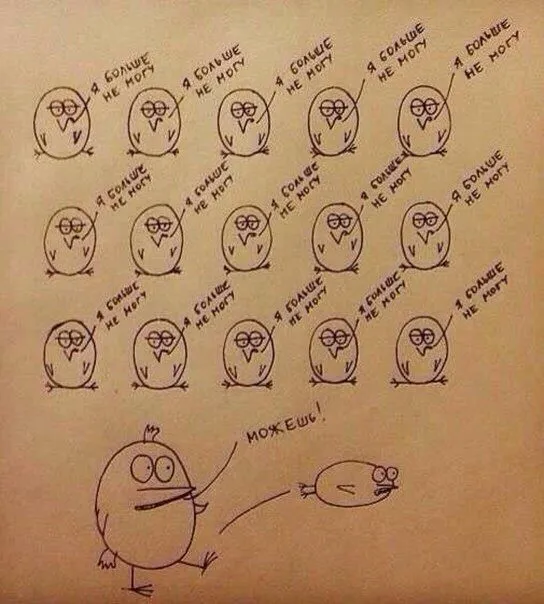 Я БОЛЬШЕ
НЕ МОГУ
Я БОЛЬШЕ
НЕ МОГУ
Я БОЛЬШЕ
НЕ МОГУ
Я БОЛЬШЕ
НЕ МОГУ
Я БОЛЬШЕ
НЕ МОГУ
Я БОЛЬШЕ
НЕ МОГУ
Я БОЛЬШЕ
НЕ МОГУ
Я БОЛЬШЕ
НЕ МОГУ
Я БОЛЬШЕ
НЕ МОГУ
Я БОЛЬШЕ
НЕ МОГУ
Я БОЛЬШЕ
НЕ МОГУ
Я БОЛЬШЕ
НЕ МОГУ
Я БОЛЬШЕ
НЕ МОГУ
Я БОЛЬШЕ
НЕ МОГУ
Я БОЛЬШЕ
НЕ МОГУ
МОЖЕШЬ!